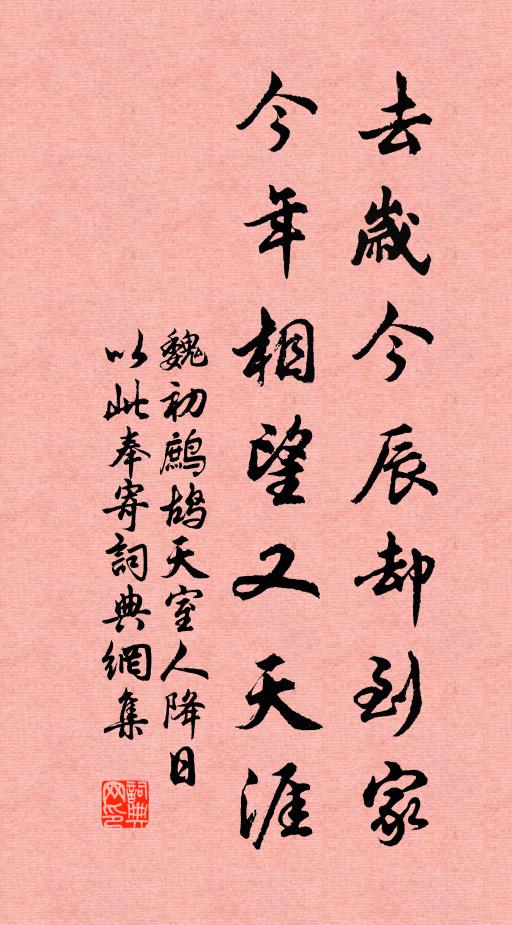 去歲今辰却到家
今年相望又天涯
魏初鷓鴣天室人降日
以此奉寄詞典網集
詞典
网印